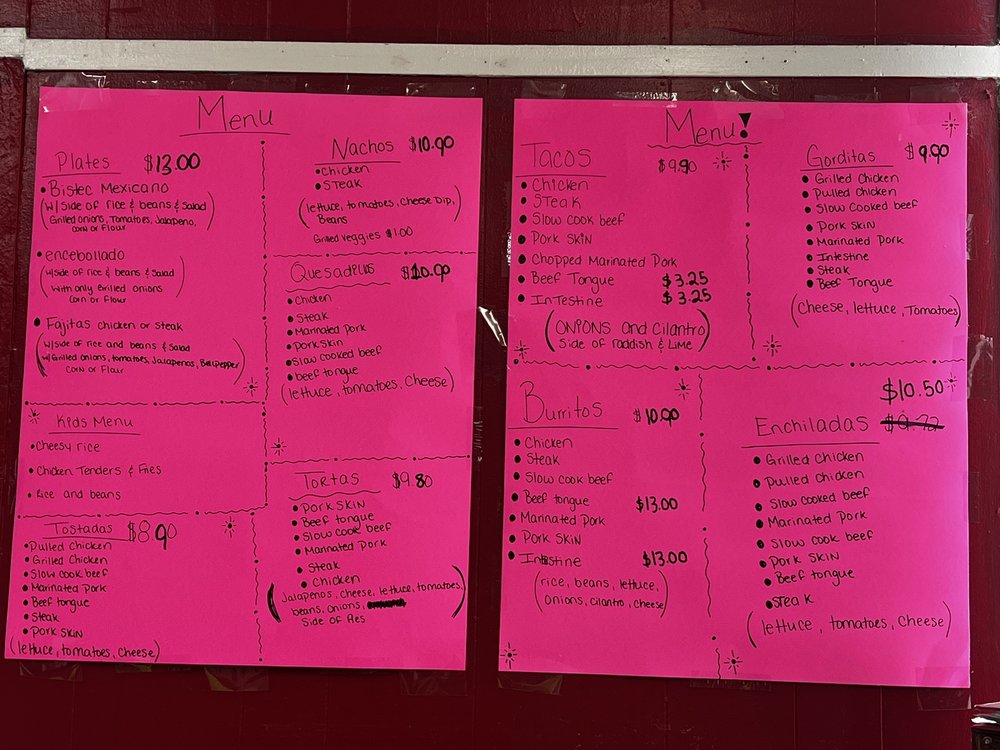 Menu
Plates $13.00
• Bistec Mexicano
(w/ side of rice & beans & Salad
Grilled onions, Tomatoes, Jalapeno,
corn or Flour)
• encebollado
(w/side of rice & beans & Salad
With only Grilled onions
Corn or Flour)
• Fajitas chicken or steak
(w/side of rice and beans & Salad
w/Grilled onions, tomatoes, Jalapenos, Bellpepper
corn or Flour)
Kids Menu
• Cheesy rice
• Chicken Tenders & Fries
• Rice and beans
Tostadas $8.90
• Pulled Chicken
• Grilled Chicken
• Slow cook beef
• Marinated Pork
• Beef tongue
• Steak
• Pork Skin
(lettuce, tomatoes, cheese)
Nachos $10.90
• Chicken
• Steak
(lettuce, tomatoes, Cheese Dip,
Beans)
Grilled veggies $1.00
Quesadillas $10.90
• Chicken
• Steak
• Marinated Pork
• Pork skin
• Slow cooked beef
• beef tongue
(lettuce, tomatoes, Cheese)
Tortas $9.80
• Pork Skin
• Beef tongue
• Slow cook beef
• Marinated Pork
• Steak
• Chicken
(Jalapenos, cheese, lettuce, tomatoes,
beans, onions,
Side of Fies)
Menu!
Tacos $9.90
• Chicken
• Steak
• Slow cook beef
• Pork Skin
• Chopped Marinated Pork
• Beef Tongue $3.25
• Intestine $3.25
(Onions and Cilantro)
Side of raddish & Lime
Gorditas $9.90
• Grilled Chicken
• Pulled Chicken
• Slow Cooked beef
• Pork Skin
• Marinated Pork
• Intestine
• Steak
• Beef Tongue
(Cheese, lettuce, Tomatoes)
Burritos $10.90
• Chicken
• Steak
• Slow cook beef
• Beef tongue $13.00
• Marinated Pork
• Pork Skin
• Intestine $13.00
(rice, beans, lettuce,
Onions, cilantro, cheese)
$10.50
Enchiladas $9.72
• Grilled Chicken
• Pulled chicken
• Slow cooked beef
• Marinated Pork
• Slow cook beef
• Pork Skin
• Beef tongue
• Steak
(lettuce, tomatoes, cheese)